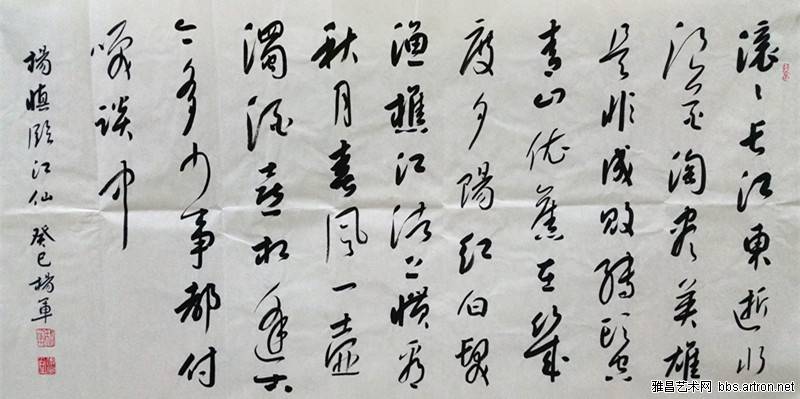 滚滚长江東逝水
浪花淘尽英雄
是非成敗轉頭空
青山依舊在幾
度夕陽红白髮
渔樵江渚上惯看
秋月春風一壶
濁酒喜相逢古
今多少事都付
笑談中
楊慎臨江仙 癸巳楊軍
雅昌艺术网 bbs.artron.net